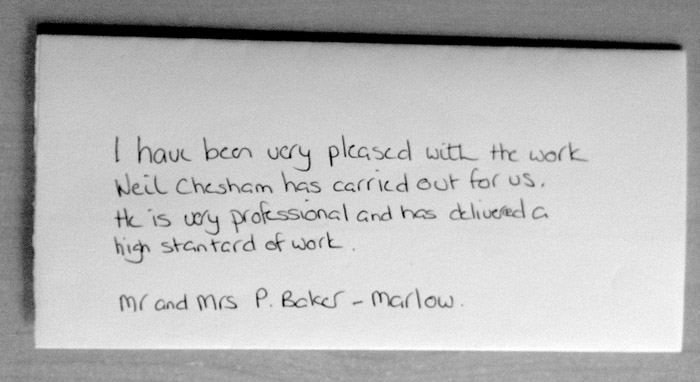 I have been very pleased with the work
Neil Chesham has carried out for us.
He is very professional and has delivered a
high stantard of work.
Mr and Mrs P. Baker - Marlow.